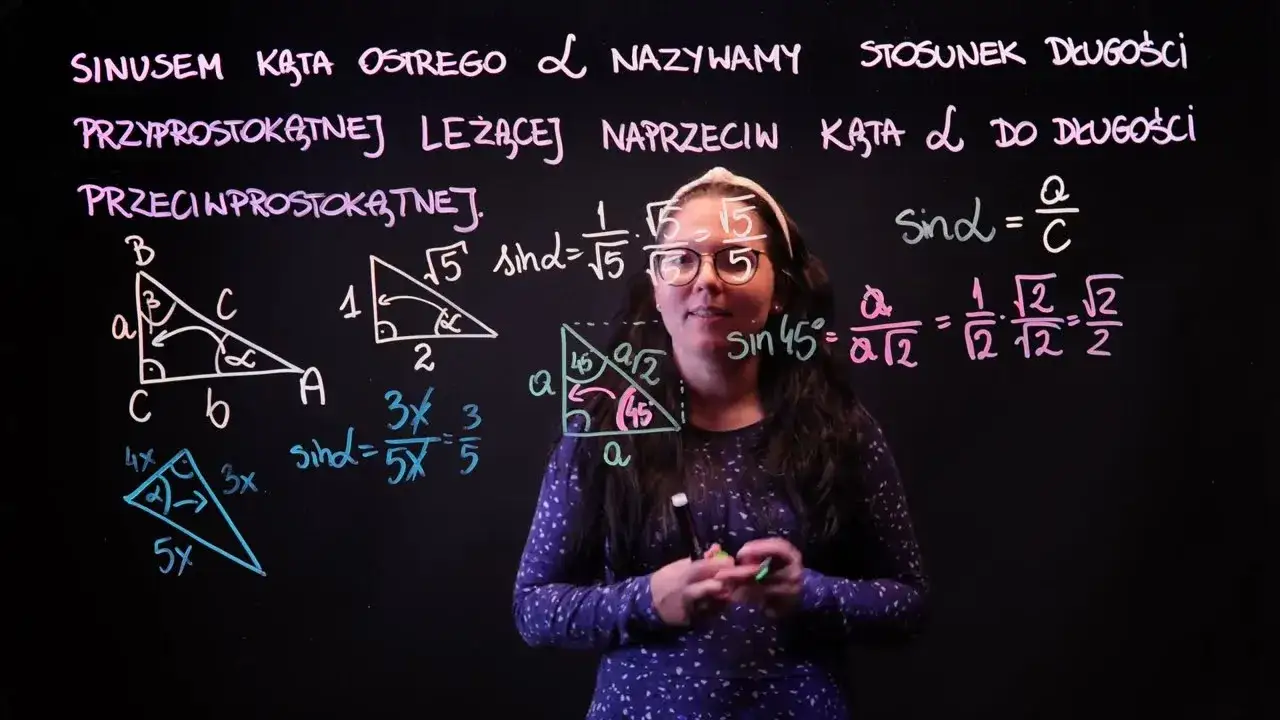 SINUSEM KĄTA OSTREGO α NAZYWAMY STOSUNEK DŁUGOŚCI
PRZYPROSTOKĄTNEJ LEŻĄCEJ NAPRZECIW KĄTA α DO DŁUGOŚCI
PRZECIWPROSTOKĄTNEJ.
sinα = a/c
B
β
a
c
α
C
b
A
1
√5
α
2
sinα = 1/√5 · √5/√5 = √5/5
a
45
a√2
45°
a
sin 45° = a/a√2 = 1/√2 · √2/√2 = √2/2
4x
α
3x
5x
sinα = 3x/5x = 3/5